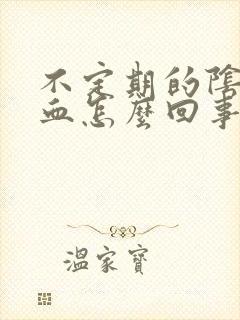 不定期的陰
血怎麼回事
溫家寶